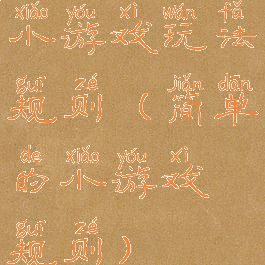 xiǎo yóu xì wán fǎ
小游戏玩法
guī zé jiǎn dān
规则(简单
de xiǎo yóu xì
的小游戏
guī zé
规则)